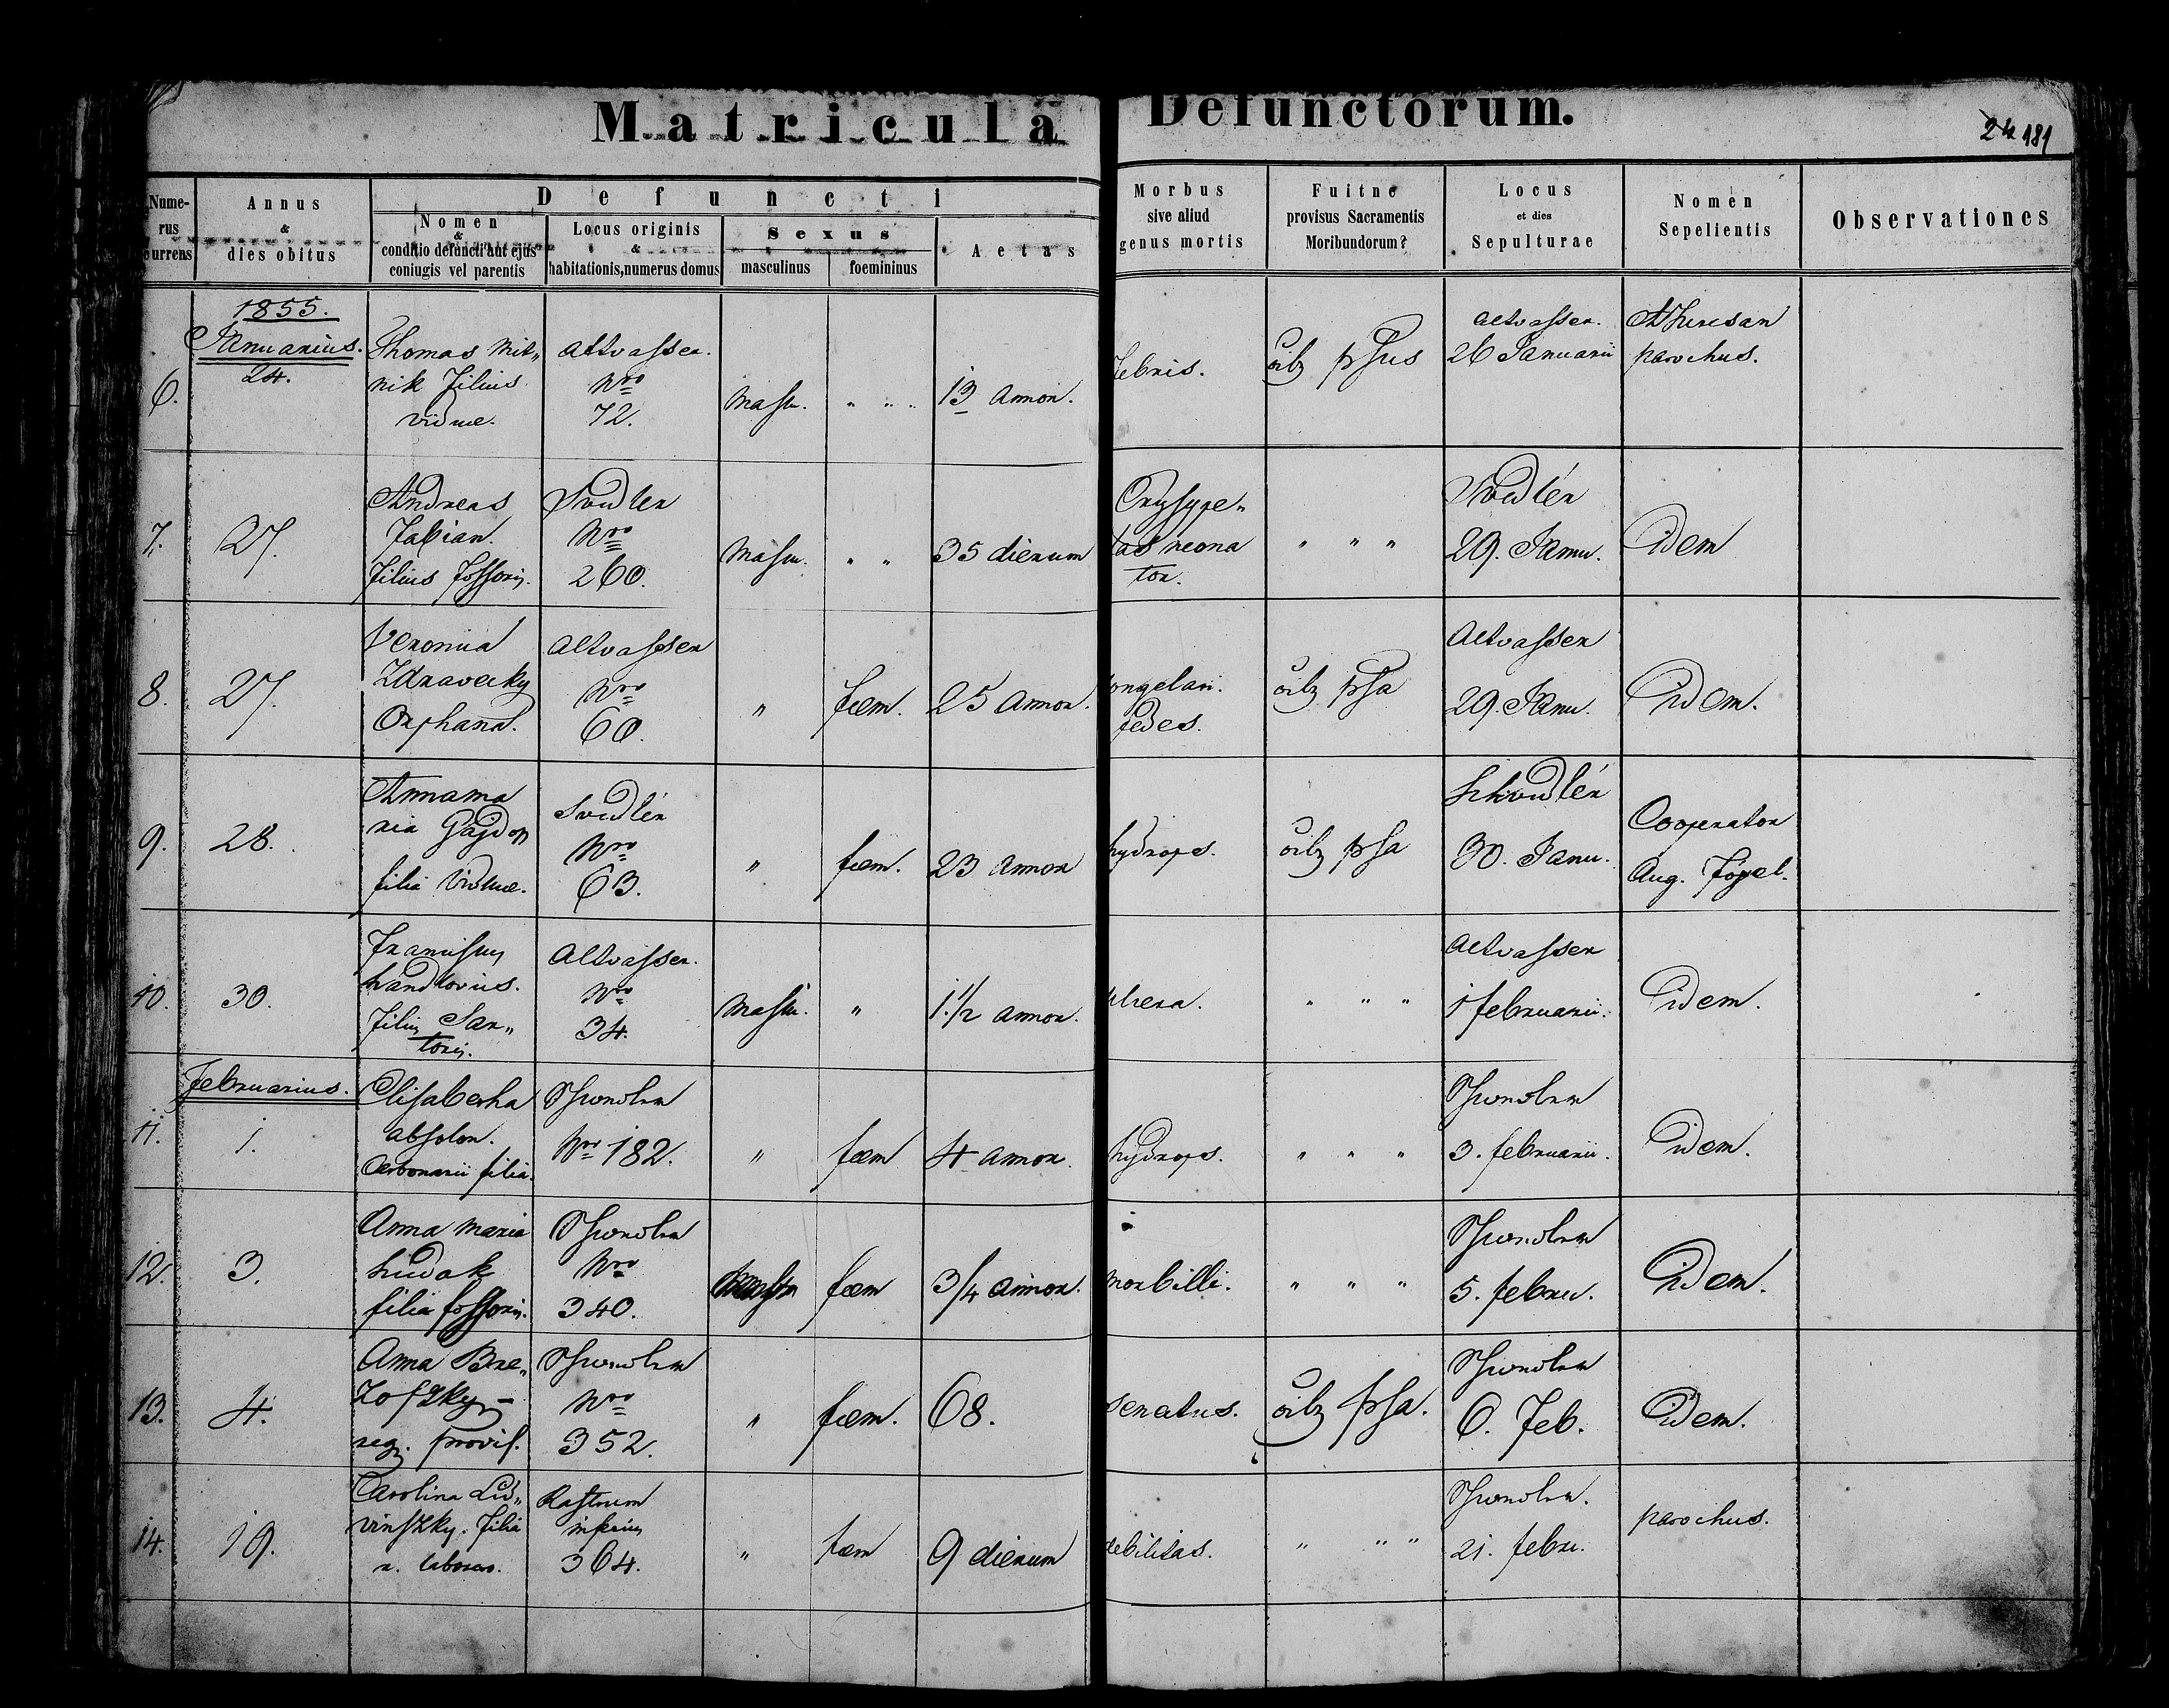 Matricula Defunctorum.
24 181
Nume-
rus
currens
Annus
&
dies obitus
Defuncti
Nomen
&
conditio defuncti aut ejus
coniugis vel parentis
Locus originis
&
habitationis, numerus domus
Sexus
masculinus
foemininus
Aetas
Morbus
sive aliud
genus mortis
Fuitne
provisus Sacramentis
Moribundorum?
Locus
et dies
Sepulturae
Nomen
Sepelientis
Observationes
1855.
Januarius.
6.
24.
Thomas Mit„
nik filius
viduae.
Altvasser.
Nro
72.
Mascu.
" " "
13 annor.
febris.
oib9 pSus
Altvasser.
26 Januarii
parochus.
7.
27.
Andreas
Fabian.
filius fossoris.
Svedler
Nro
260.
Mascu.
" "
35 dierum
Erysype„
las neona
tor.
" " "
Svedlér
29. Janu.
Idem
8.
27.
Veronica
Zdravecky
Orphana.
Altvasser
Nro
60.
"
foem.
25 annor.
congelati.
pedes.
oib9 pSa
Altvasser
29. Janu.
Idem.
9.
28.
Annama
ria Gajdos
filia Viduae.
Svedlér
Nro
63.
"
foem.
23 annor
hydrops.
oib9 pSa
Schvedlér
30. Janu.
Cooperator
Aug. Fögel.
10.
30.
Franciscus
Handlovics.
filius Sar„
toris.
Altvasser.
Nro
34.
Mascu.
"
1 1/2 annor.
" " "
Altvasser
1 februarii.
Idem.
Februarius.
11.
1.
Elisabetha
Absolon.
Carbonarii filia.
Schwedler
Nro 182.
"
foem
4 annor.
hydrops.
" " "
Schwedler
3. februarii.
Idem.
12.
3.
Anna Maria
Hudak
filia fossoris.
Schwedler
Nro
340.
foem
3/4 annor.
morbilli.
" " "
Schwedler
5. febru.
Idem.
13.
4.
Anna Bre„
zofszky
reg. provis.
Schwedler
Nro
352.
"
foem.
68.
senectus.
oib9 pSa.
Schwedler
6. Feb.
Idem.
14.
19.
Carolina Lud„
vinszky. filia
Rastrum
inferius
364.
"
foem
9 dierum
debilitas.
" " "
Schwedler.
21. febru.
parochus.